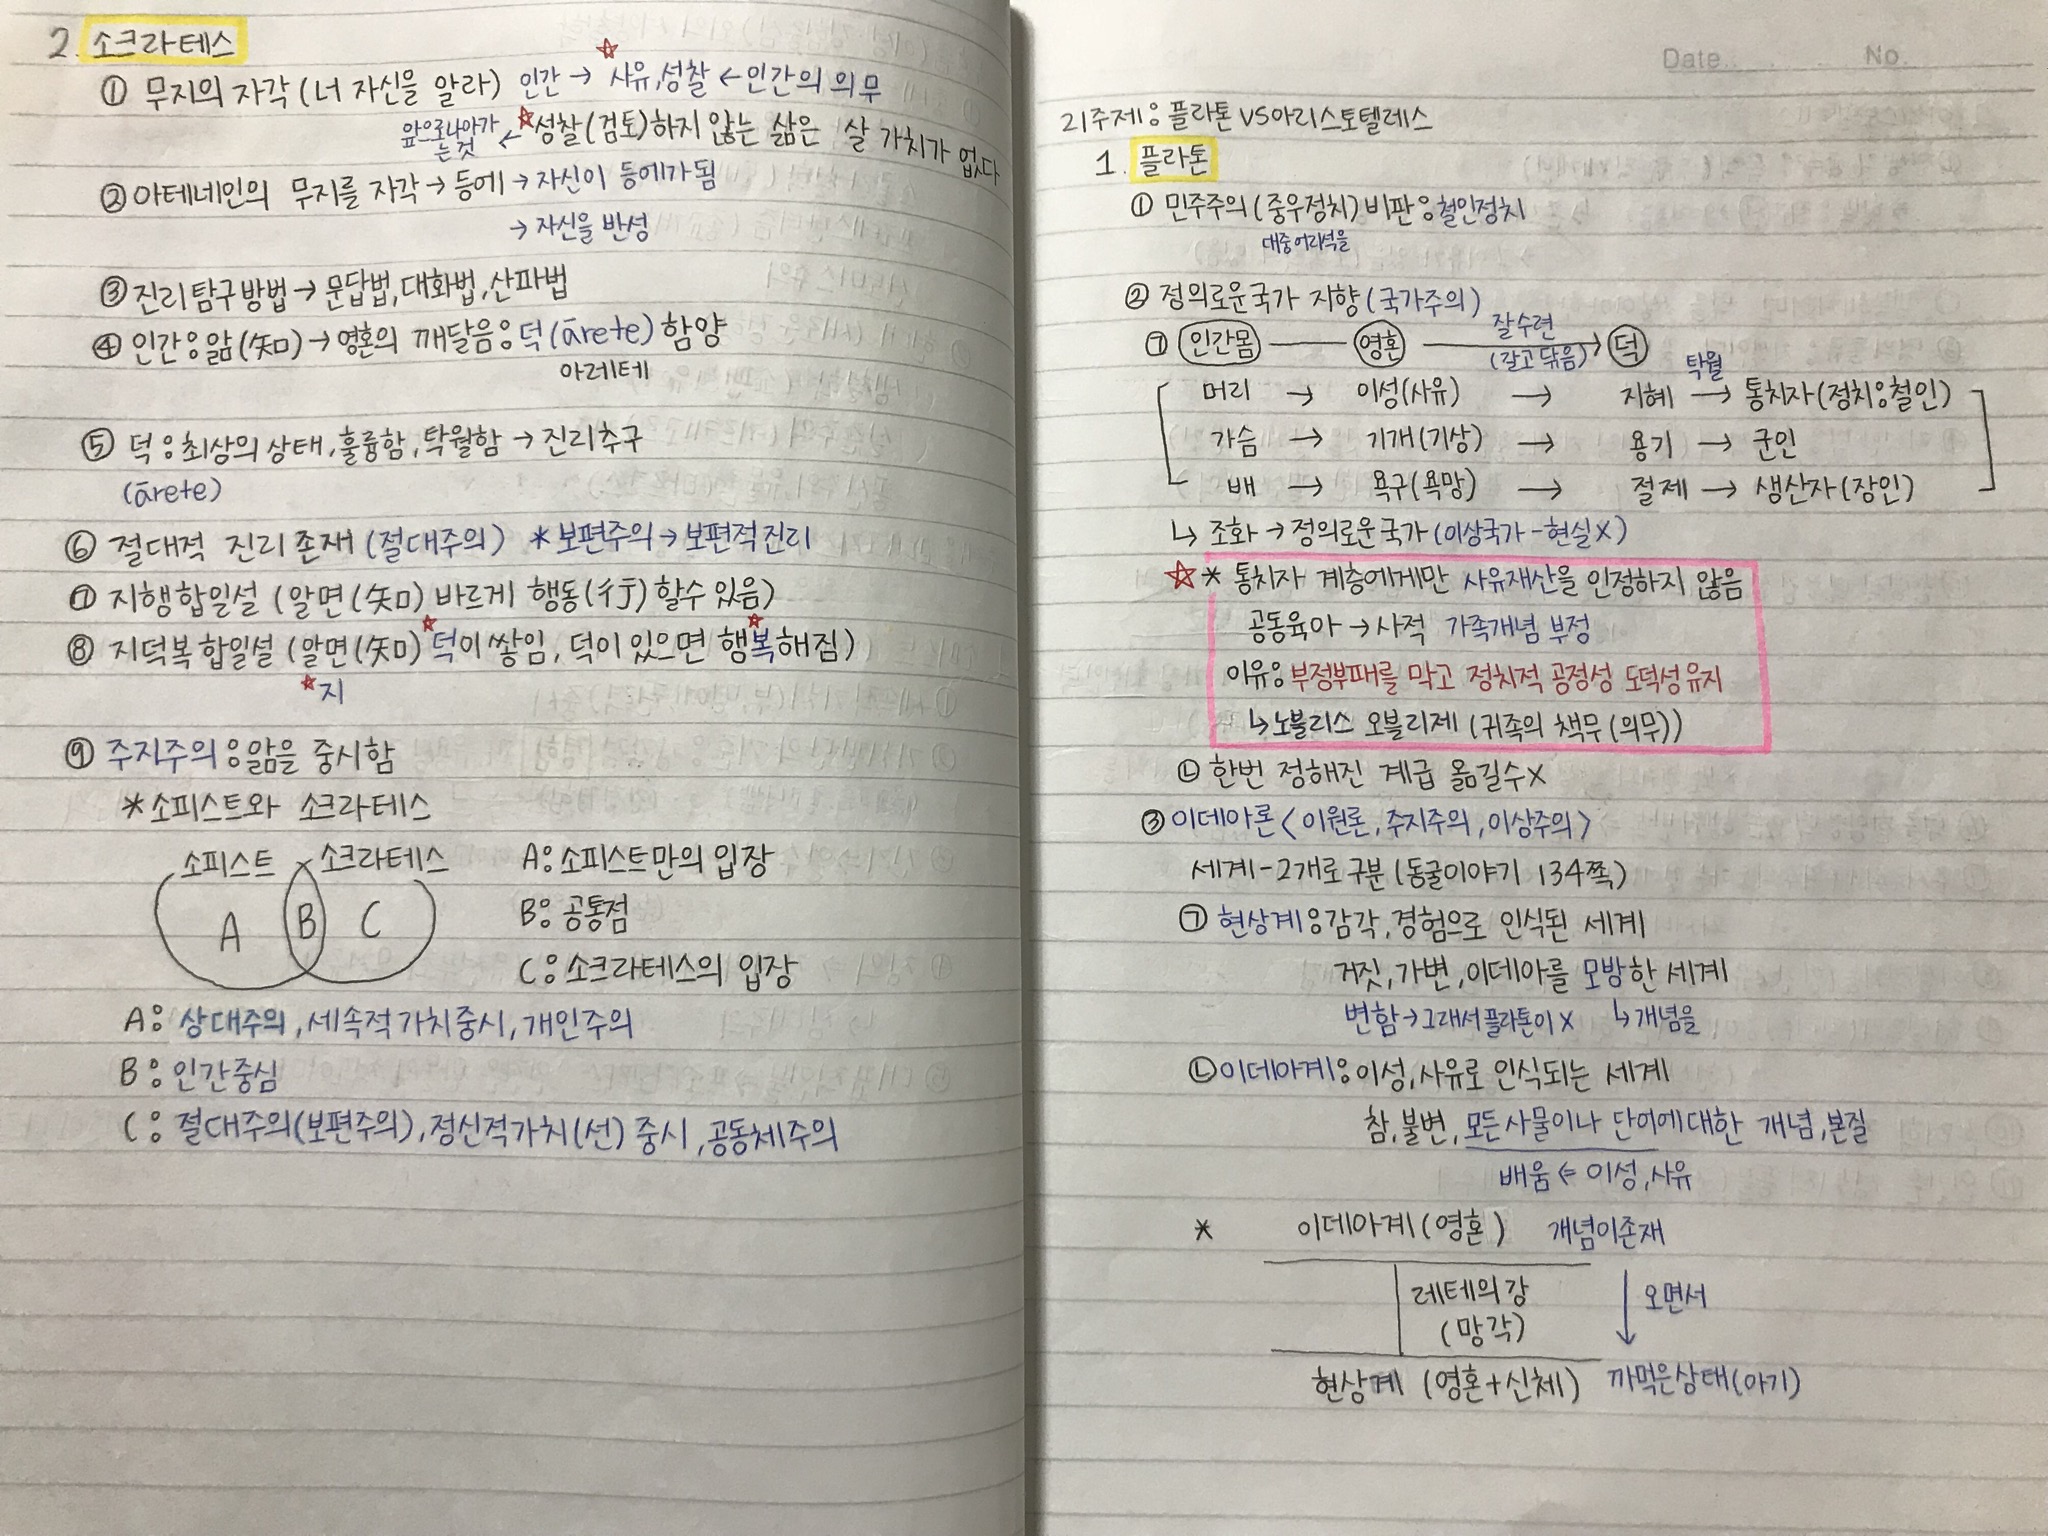 2. 소크라테스
① 무지의 자각 (너 자신을 알라) 인간 → ☆사유, 성찰 ← 인간의 의무
앞으로 나아가는 것 ← ☆성찰(검토)하지 않는 삶은 살 가치가 없다
② 아테네인의 무지를 자각 → 등에 → 자신이 등에가 됨
→ 자신을 반성
③ 진리탐구방법 → 문답법, 대화법, 산파법
④ 인간: 앎(知) → 영혼의 깨달음: 덕(ārete) 함양
아레테
⑤ 덕: 최상의 상태, 훌륭함, 탁월함 → 진리추구
(ārete)
⑥ 절대적 진리 존재 (절대주의) * 보편주의 → 보편적 진리
⑦ 지행합일설 (알면(知) 바르게 행동(行) 할수 있음)
⑧ 지덕복합일설 (알면(知) ☆덕이 쌓임, 덕이 있으면 행☆복해짐)
☆지
⑨ 주지주의: 앎을 중시함
* 소피스트와 소크라테스
소피스트 소크라테스
A B C
A: 소피스트만의 입장
B: 공통점
C: 소크라테스의 입장
A: 상대주의, 세속적가치중시, 개인주의
B: 인간중심
C: 절대주의(보편주의), 정신적가치(선) 중시, 공동체주의
Date. . . No.
2)주제: 플라톤 VS 아리스토텔레스
1. 플라톤
① 민주주의 (중우정치) 비판: 철인정치
대중 어리석을
② 정의로운국가 지향 (국가주의)
㉠ 인간몸 — 영혼 잘수련 (갈고 닦음) → 덕
탁월
머리 → 이성(사유) → 지혜 → 통치자(정치: 철인)
가슴 → 기개(기상) → 용기 → 군인
배 → 욕구(욕망) → 절제 → 생산자(장인)
↳ 조화 → 정의로운국가 (이상국가-현실X)
☆* 통치자 계층에게만 사유재산을 인정하지 않음
공동육아 → 사적 가족개념 부정
이유: 부정부패를 막고 정치적 공정성 도덕성유지
↳ 노블리스 오블리제 (귀족의 책무(의무))
㉡ 한번 정해진 계급 옮길수X
③ 이데아론 <이원론, 주지주의, 이상주의>
세계-2개로 구분 (동굴이야기 134쪽)
㉠ 현상계: 감각, 경험으로 인식된 세계
거짓, 가변, 이데아를 모방한 세계
변함 → 그래서 플라톤이 X ↳ 개념을
㉡ 이데아계: 이성, 사유로 인식되는 세계
참, 불변, 모든 사물이나 단어에 대한 개념, 본질
배움 ⇐ 이성, 사유
* 이데아계 (영혼) 개념이존재
레테의 강 ↓ 오면서
(망각)
현상계 (영혼+신체) 까먹은상태(아기)